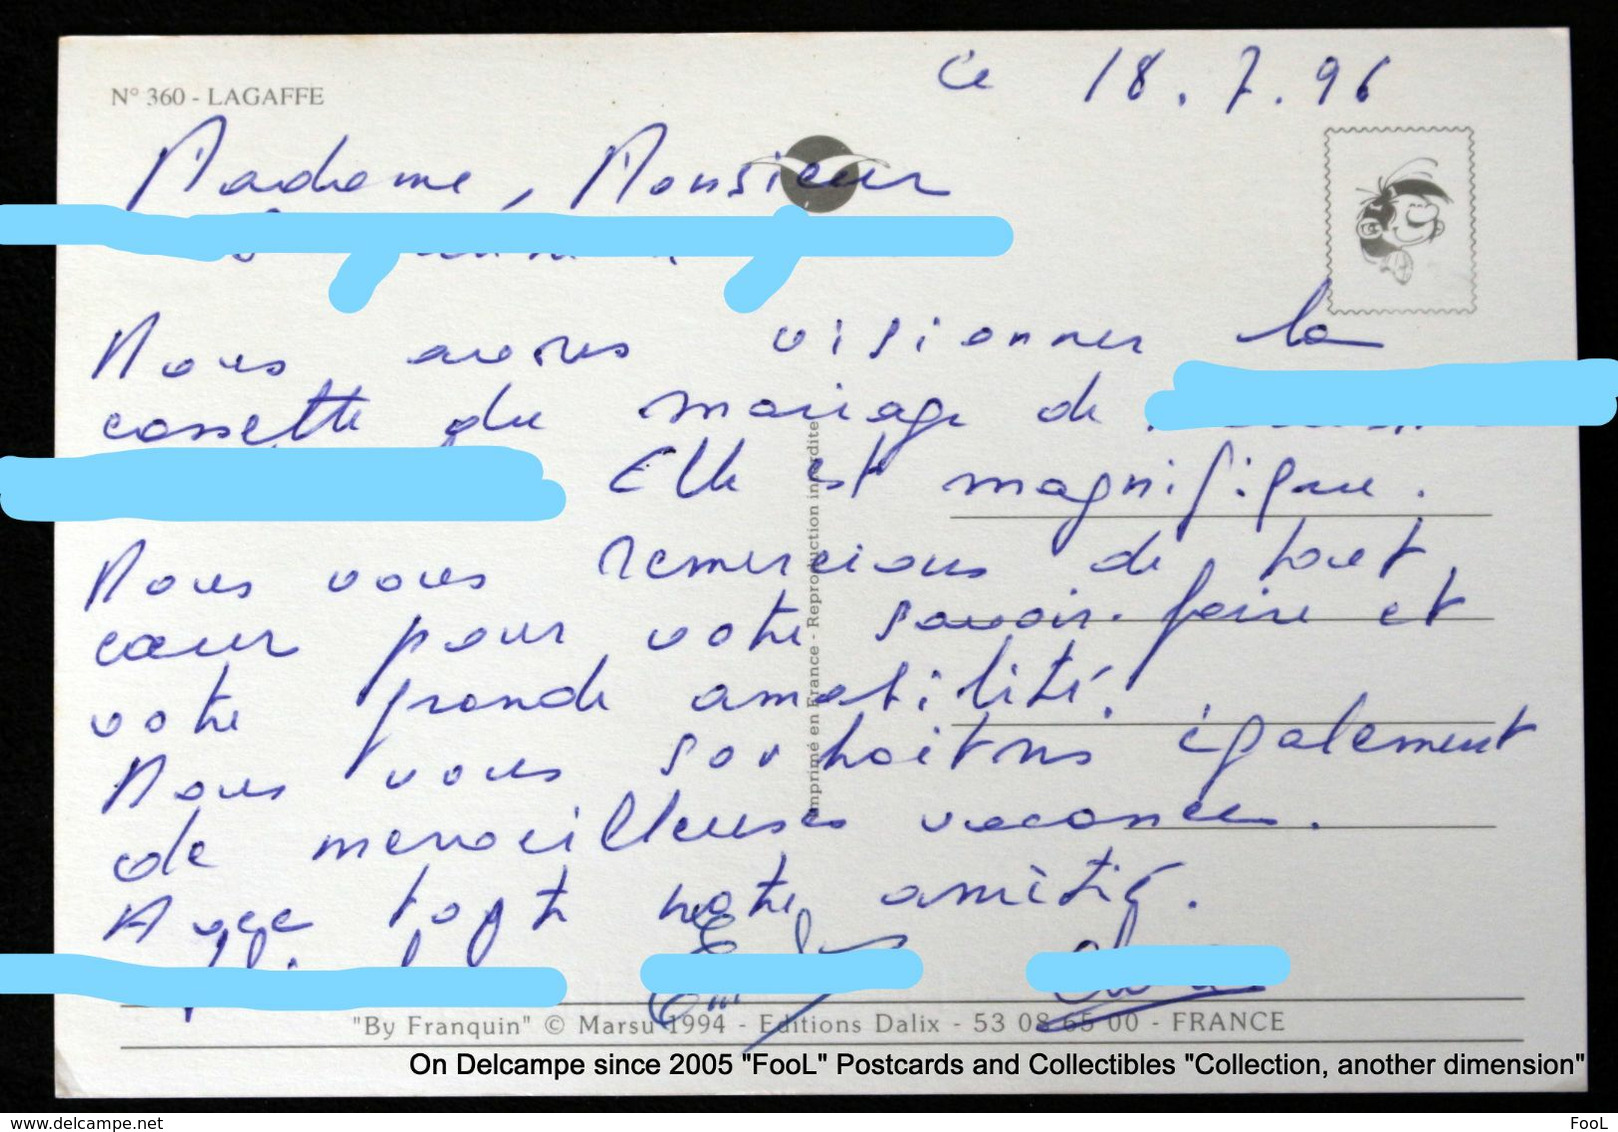 ce 18.7.96
N° 360 - LAGAFFE
Madame, Monsieur
Nous avons visionner la
cassette du mariage de
Elle est magnifique.
Nous vous remercions de tout
cœur pour votre savoir-faire et
votre grande amabilité.
Nous vous souhaitons également
de merveilleuses vacances.
Avec toute notre amitié.
Imprimé en France - Reproduction interdite
"By Franquin" © Marsu 1994 - Editions Dalix - 53 08 65 00 - FRANCE
On Delcampe since 2005 "FooL" Postcards and Collectibles "Collection, another dimension"
www.delcampe.net
FooL